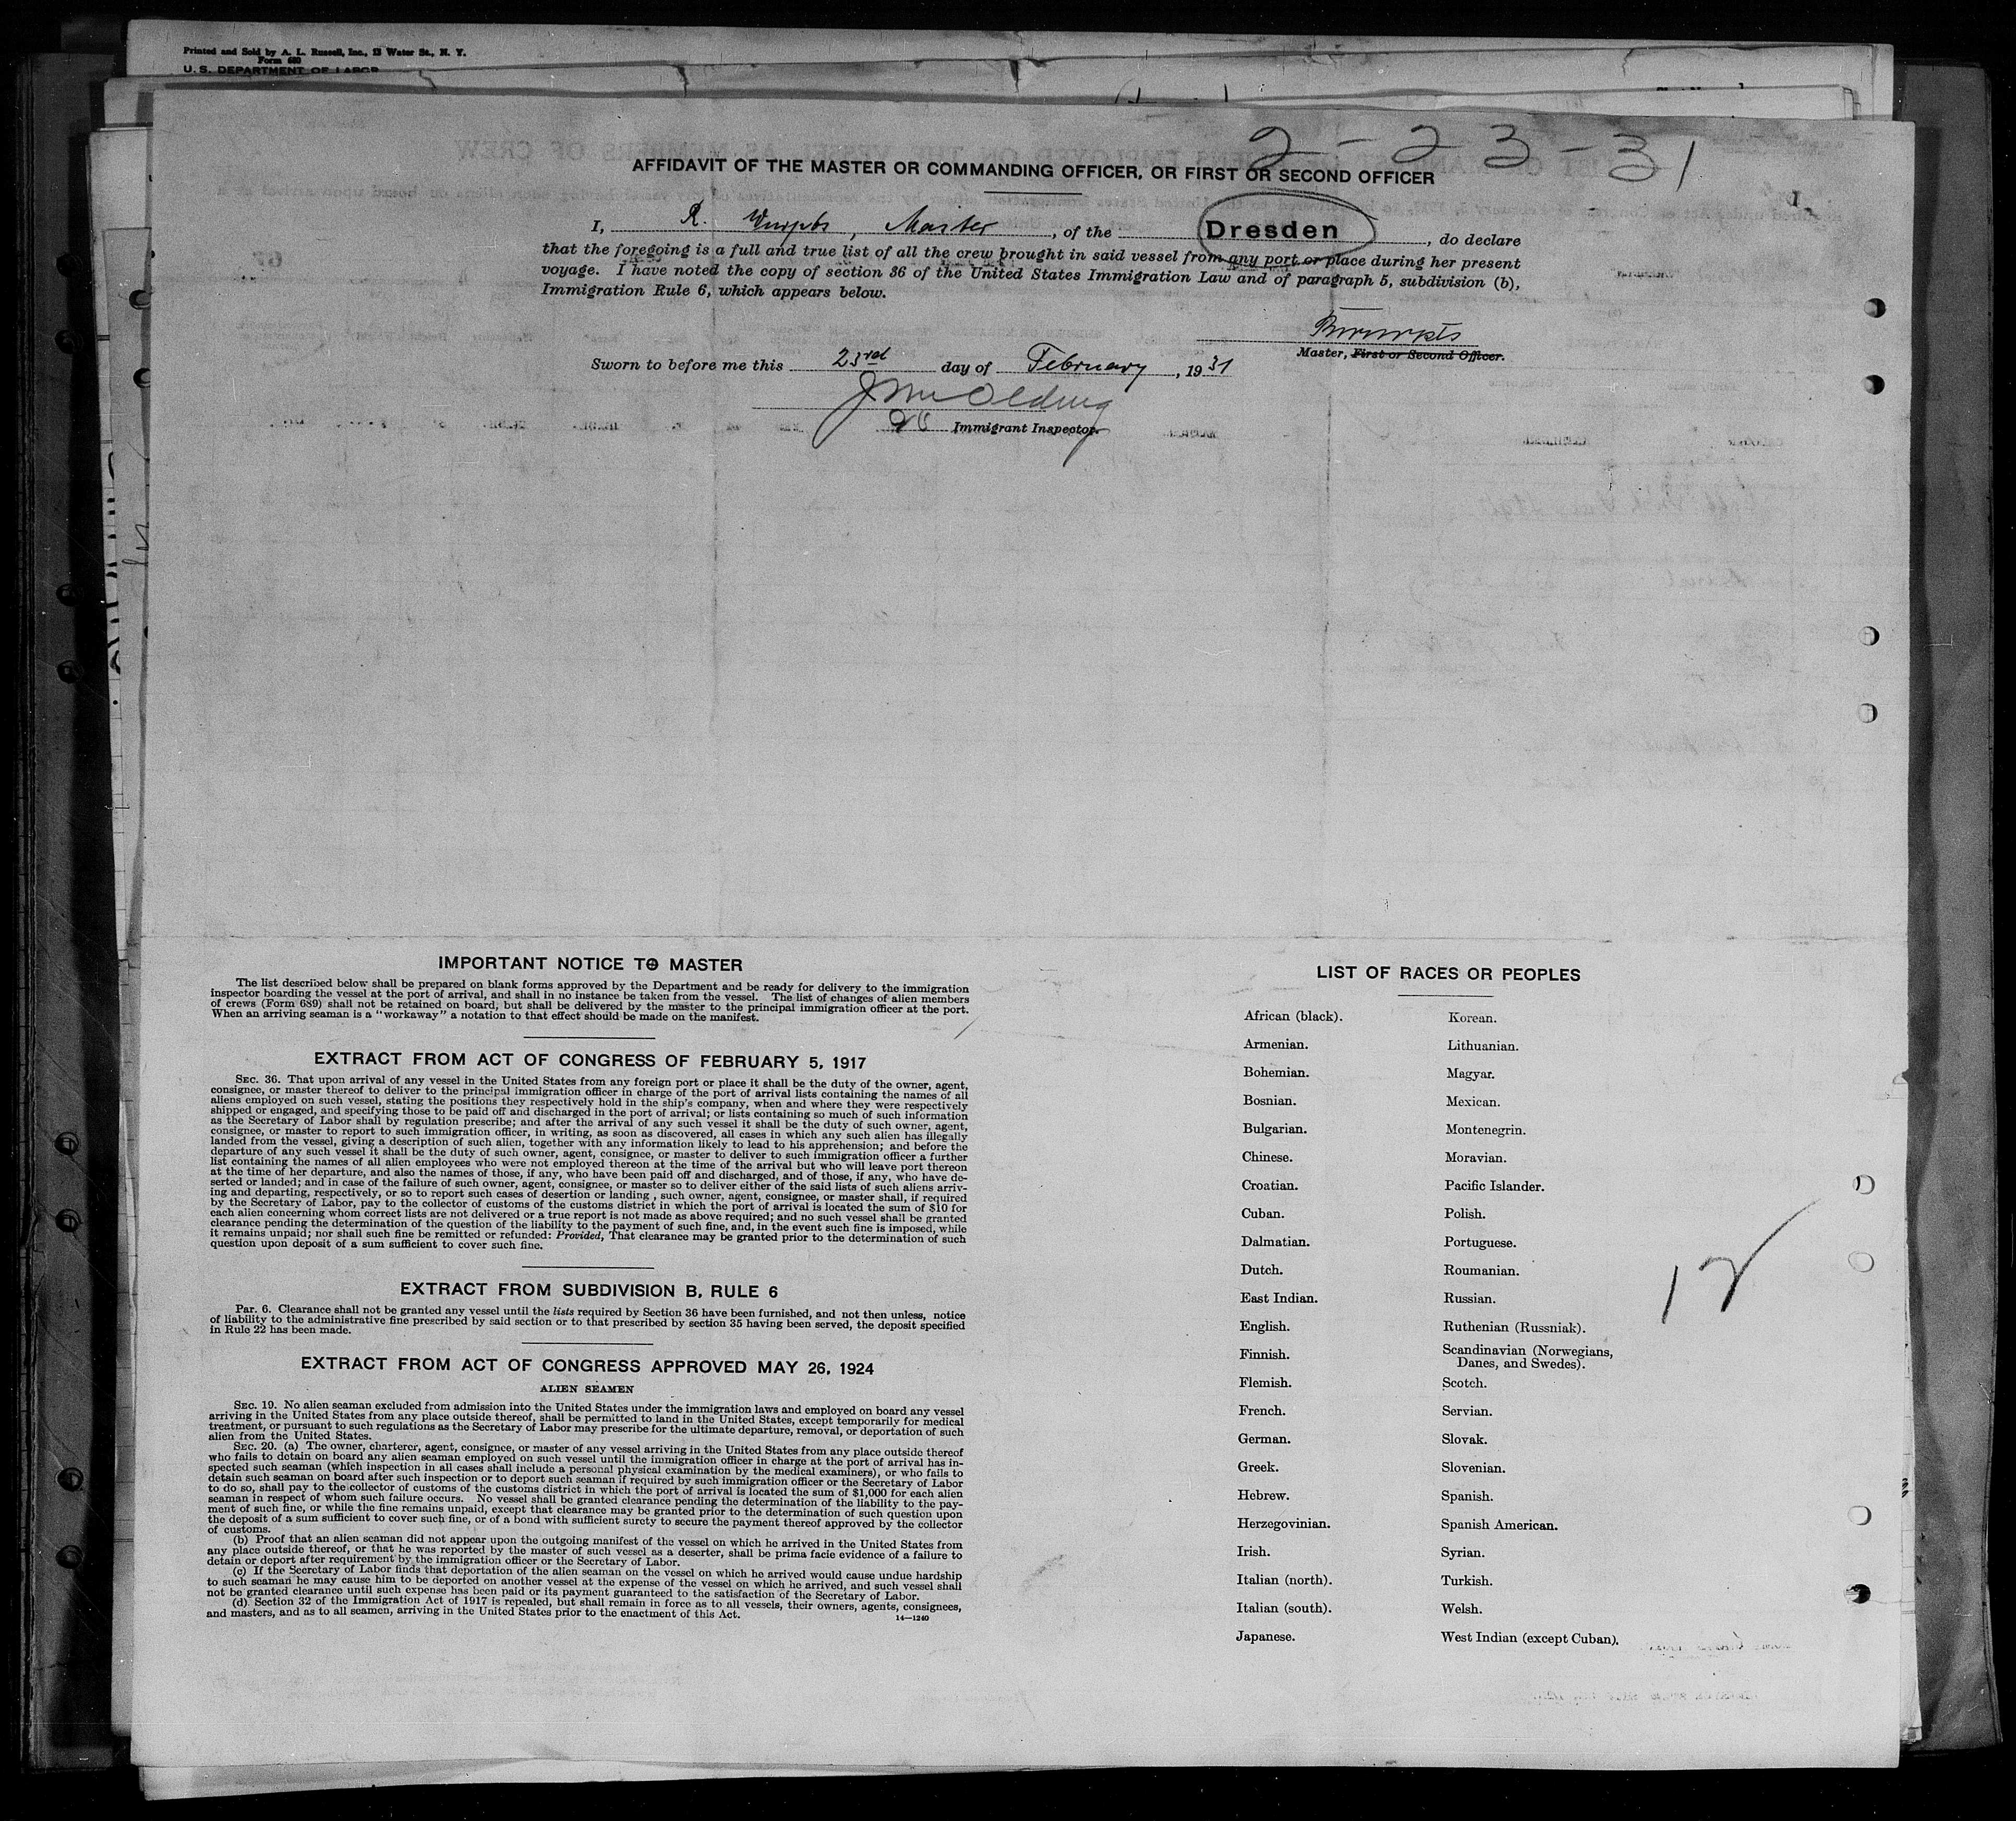 Printed and Sold by A. L. Russell, Inc., 13 Water St., N. Y.
Form 680
U. S. DEPARTMENT OF LABOR
2-23-31
AFFIDAVIT OF THE MASTER OR COMMANDING OFFICER, OR FIRST OR SECOND OFFICER
I, R. , Master, of the Dresden, do declare
that the foregoing is a full and true list of all the crew brought in said vessel from any port or place during her present
voyage. I have noted the copy of section 36 of the United States Immigration Law and of paragraph 5, subdivision (b),
Immigration Rule 6, which appears below.
Master, First or Second Officer.
Sworn to before me this 23rd day of February, 1931
Immigrant Inspector.
IMPORTANT NOTICE TO MASTER
The list described below shall be prepared on blank forms approved by the Department and be ready for delivery to the immigration
inspector boarding the vessel at the port of arrival, and shall in no instance be taken from the vessel. The list of changes of alien members
of crews (Form 689) shall not be retained on board, but shall be delivered by the master to the principal immigration officer at the port.
When an arriving seaman is a "workaway" a notation to that effect should be made on the manifest.
EXTRACT FROM ACT OF CONGRESS OF FEBRUARY 5, 1917
SEC. 36. That upon arrival of any vessel in the United States from any foreign port or place it shall be the duty of the owner, agent,
consignee, or master thereof to deliver to the principal immigration officer in charge of the port of arrival lists containing the names of all
aliens employed on such vessel, stating the positions they respectively hold in the ship's company, when and where they were respectively
shipped or engaged, and specifying those to be paid off and discharged in the port of arrival; or lists containing so much of such information
as the Secretary of Labor shall by regulation prescribe; and after the arrival of any such vessel it shall be the duty of such owner, agent,
consignee, or master to report to such immigration officer, in writing, as soon as discovered, all cases in which any such alien has illegally
landed from the vessel, giving a description of such alien, together with any information likely to lead to his apprehension; and before the
departure of any such vessel it shall be the duty of such owner, agent, consignee, or master to deliver to such immigration officer a further
list containing the names of all alien employees who were not employed thereon at the time of the arrival but who will leave port thereon
at the time of her departure, and also the names of those, if any, who have been paid off and discharged, and of those, if any, who have de-
serted or landed; and in case of the failure of such owner, agent, consignee, or master so to deliver either of the said lists of such aliens arriv-
ing and departing, respectively, or so to report such cases of desertion or landing , such owner, agent, consignee, or master shall, if required
by the Secretary of Labor, pay to the collector of customs of the customs district in which the port of arrival is located the sum of $10 for
each alien concerning whom correct lists are not delivered or a true report is not made as above required; and no such vessel shall be granted
clearance pending the determination of the question of the liability to the payment of such fine, and, in the event such fine is imposed, while
it remains unpaid; nor shall such fine be remitted or refunded: Provided, That clearance may be granted prior to the determination of such
question upon deposit of a sum sufficient to cover such fine.
EXTRACT FROM SUBDIVISION B, RULE 6
Par. 6. Clearance shall not be granted any vessel until the lists required by Section 36 have been furnished, and not then unless, notice
of liability to the administrative fine prescribed by said section or to that prescribed by section 35 having been served, the deposit specified
in Rule 22 has been made.
EXTRACT FROM ACT OF CONGRESS APPROVED MAY 26, 1924
ALIEN SEAMEN
SEC. 19. No alien seaman excluded from admission into the United States under the immigration laws and employed on board any vessel
arriving in the United States from any place outside thereof, shall be permitted to land in the United States, except temporarily for medical
treatment, or pursuant to such regulations as the Secretary of Labor may prescribe for the ultimate departure, removal, or deportation of such
alien from the United States.
SEC. 20. (a) The owner, charterer, agent, consignee, or master of any vessel arriving in the United States from any place outside thereof
who fails to detain on board any alien seaman employed on such vessel until the immigration officer in charge at the port of arrival has in-
spected such seaman (which inspection in all cases shall include a personal physical examination by the medical examiners), or who fails to
detain such seaman on board after such inspection or to deport such seaman if required by such immigration officer or the Secretary of Labor
to do so, shall pay to the collector of customs of the customs district in which the port of arrival is located the sum of $1,000 for each alien
seaman in respect of whom such failure occurs. No vessel shall be granted clearance pending the determination of the liability to the pay-
ment of such fine, or while the fine remains unpaid, except that clearance may be granted prior to the determination of such question upon
the deposit of a sum sufficient to cover such fine, or of a bond with sufficient surety to secure the payment thereof approved by the collector
of customs.
(b) Proof that an alien seaman did not appear upon the outgoing manifest of the vessel on which he arrived in the United States from
any place outside thereof, or that he was reported by the master of such vessel as a deserter, shall be prima facie evidence of a failure to
detain or deport after requirement by the immigration officer or the Secretary of Labor.
(c) If the Secretary of Labor finds that deportation of the alien seaman on the vessel on which he arrived would cause undue hardship
to such seaman he may cause him to be deported on another vessel at the expense of the vessel on which he arrived, and such vessel shall
not be granted clearance until such expense has been paid or its payment guaranteed to the satisfaction of the Secretary of Labor.
(d) Section 32 of the Immigration Act of 1917 is repealed, but shall remain in force as to all vessels, their owners, agents, consignees,
and masters, and as to all seamen, arriving in the United States prior to the enactment of this Act.
14—1240
LIST OF RACES OR PEOPLES
African (black).
Armenian.
Bohemian.
Bosnian.
Bulgarian.
Chinese.
Croatian.
Cuban.
Dalmatian.
Dutch.
East Indian.
English.
Finnish.
Flemish.
French.
German.
Greek.
Hebrew.
Herzegovinian.
Irish.
Italian (north).
Italian (south).
Japanese.
Korean.
Lithuanian.
Magyar.
Mexican.
Montenegrin.
Moravian.
Pacific Islander.
Polish.
Portuguese.
Roumanian.
Russian.
Ruthenian (Russniak).
Scandinavian (Norwegians,
Danes, and Swedes).
Scotch.
Servian.
Slovak.
Slovenian.
Spanish.
Spanish American.
Syrian.
Turkish.
Welsh.
West Indian (except Cuban).